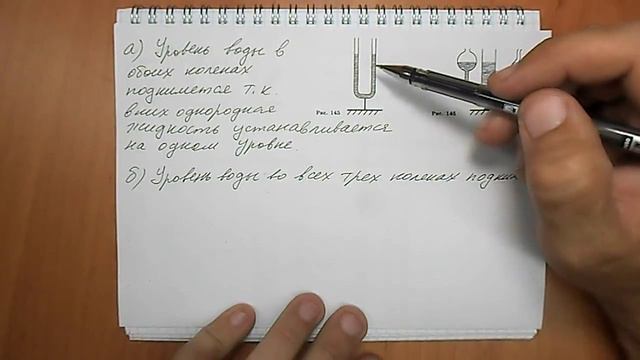 а) Уровень воды в
обоих коленах
поднимется т.к.
в них однородная
жидкость устанавливается
на одном уровне.
Рис. 145
Рис. 146
б) Уровень воды во всех трех коленах подни